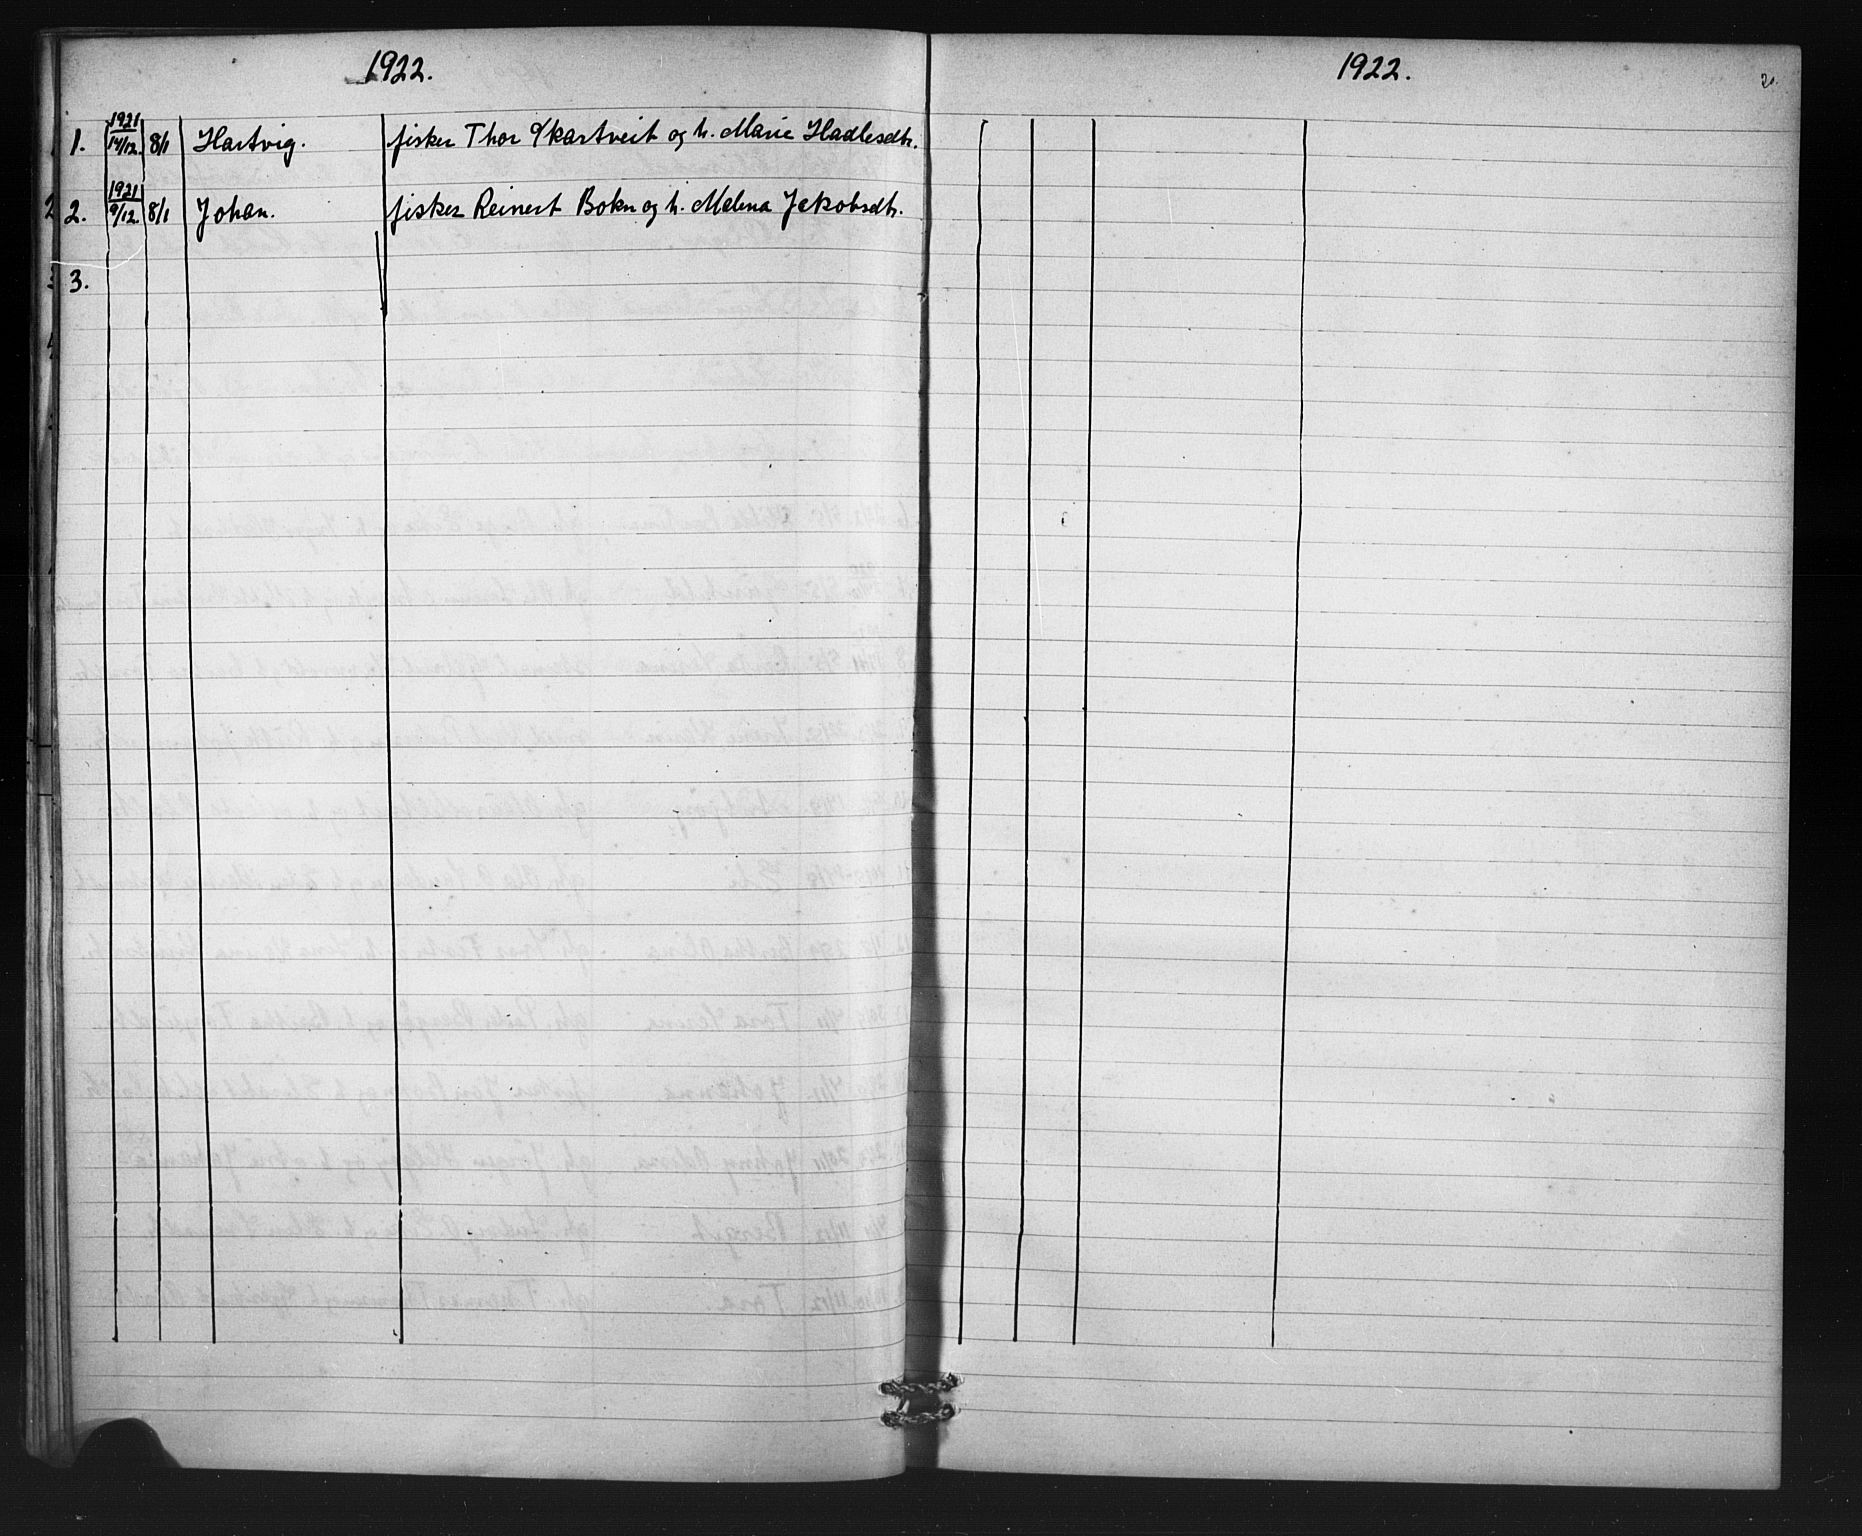 1922.
1. 1921 14/12. 8/1 Hartvig. fisker Thor Skartveit og h. Marie Hadlesdtr.
2. 1921 9/12. 8/1 Johan. fisker Reinert Bokn og h. Malena Jakobsdtr.
3.
1922.